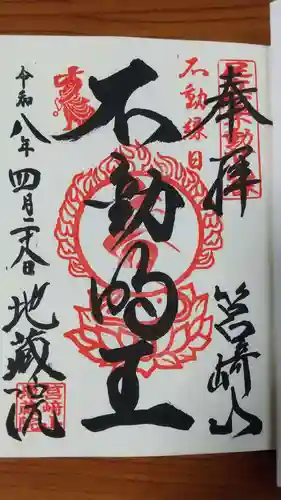 奉拝
筥崎山
不動縁日
不動明王
令和八年四月二十八日
地蔵院